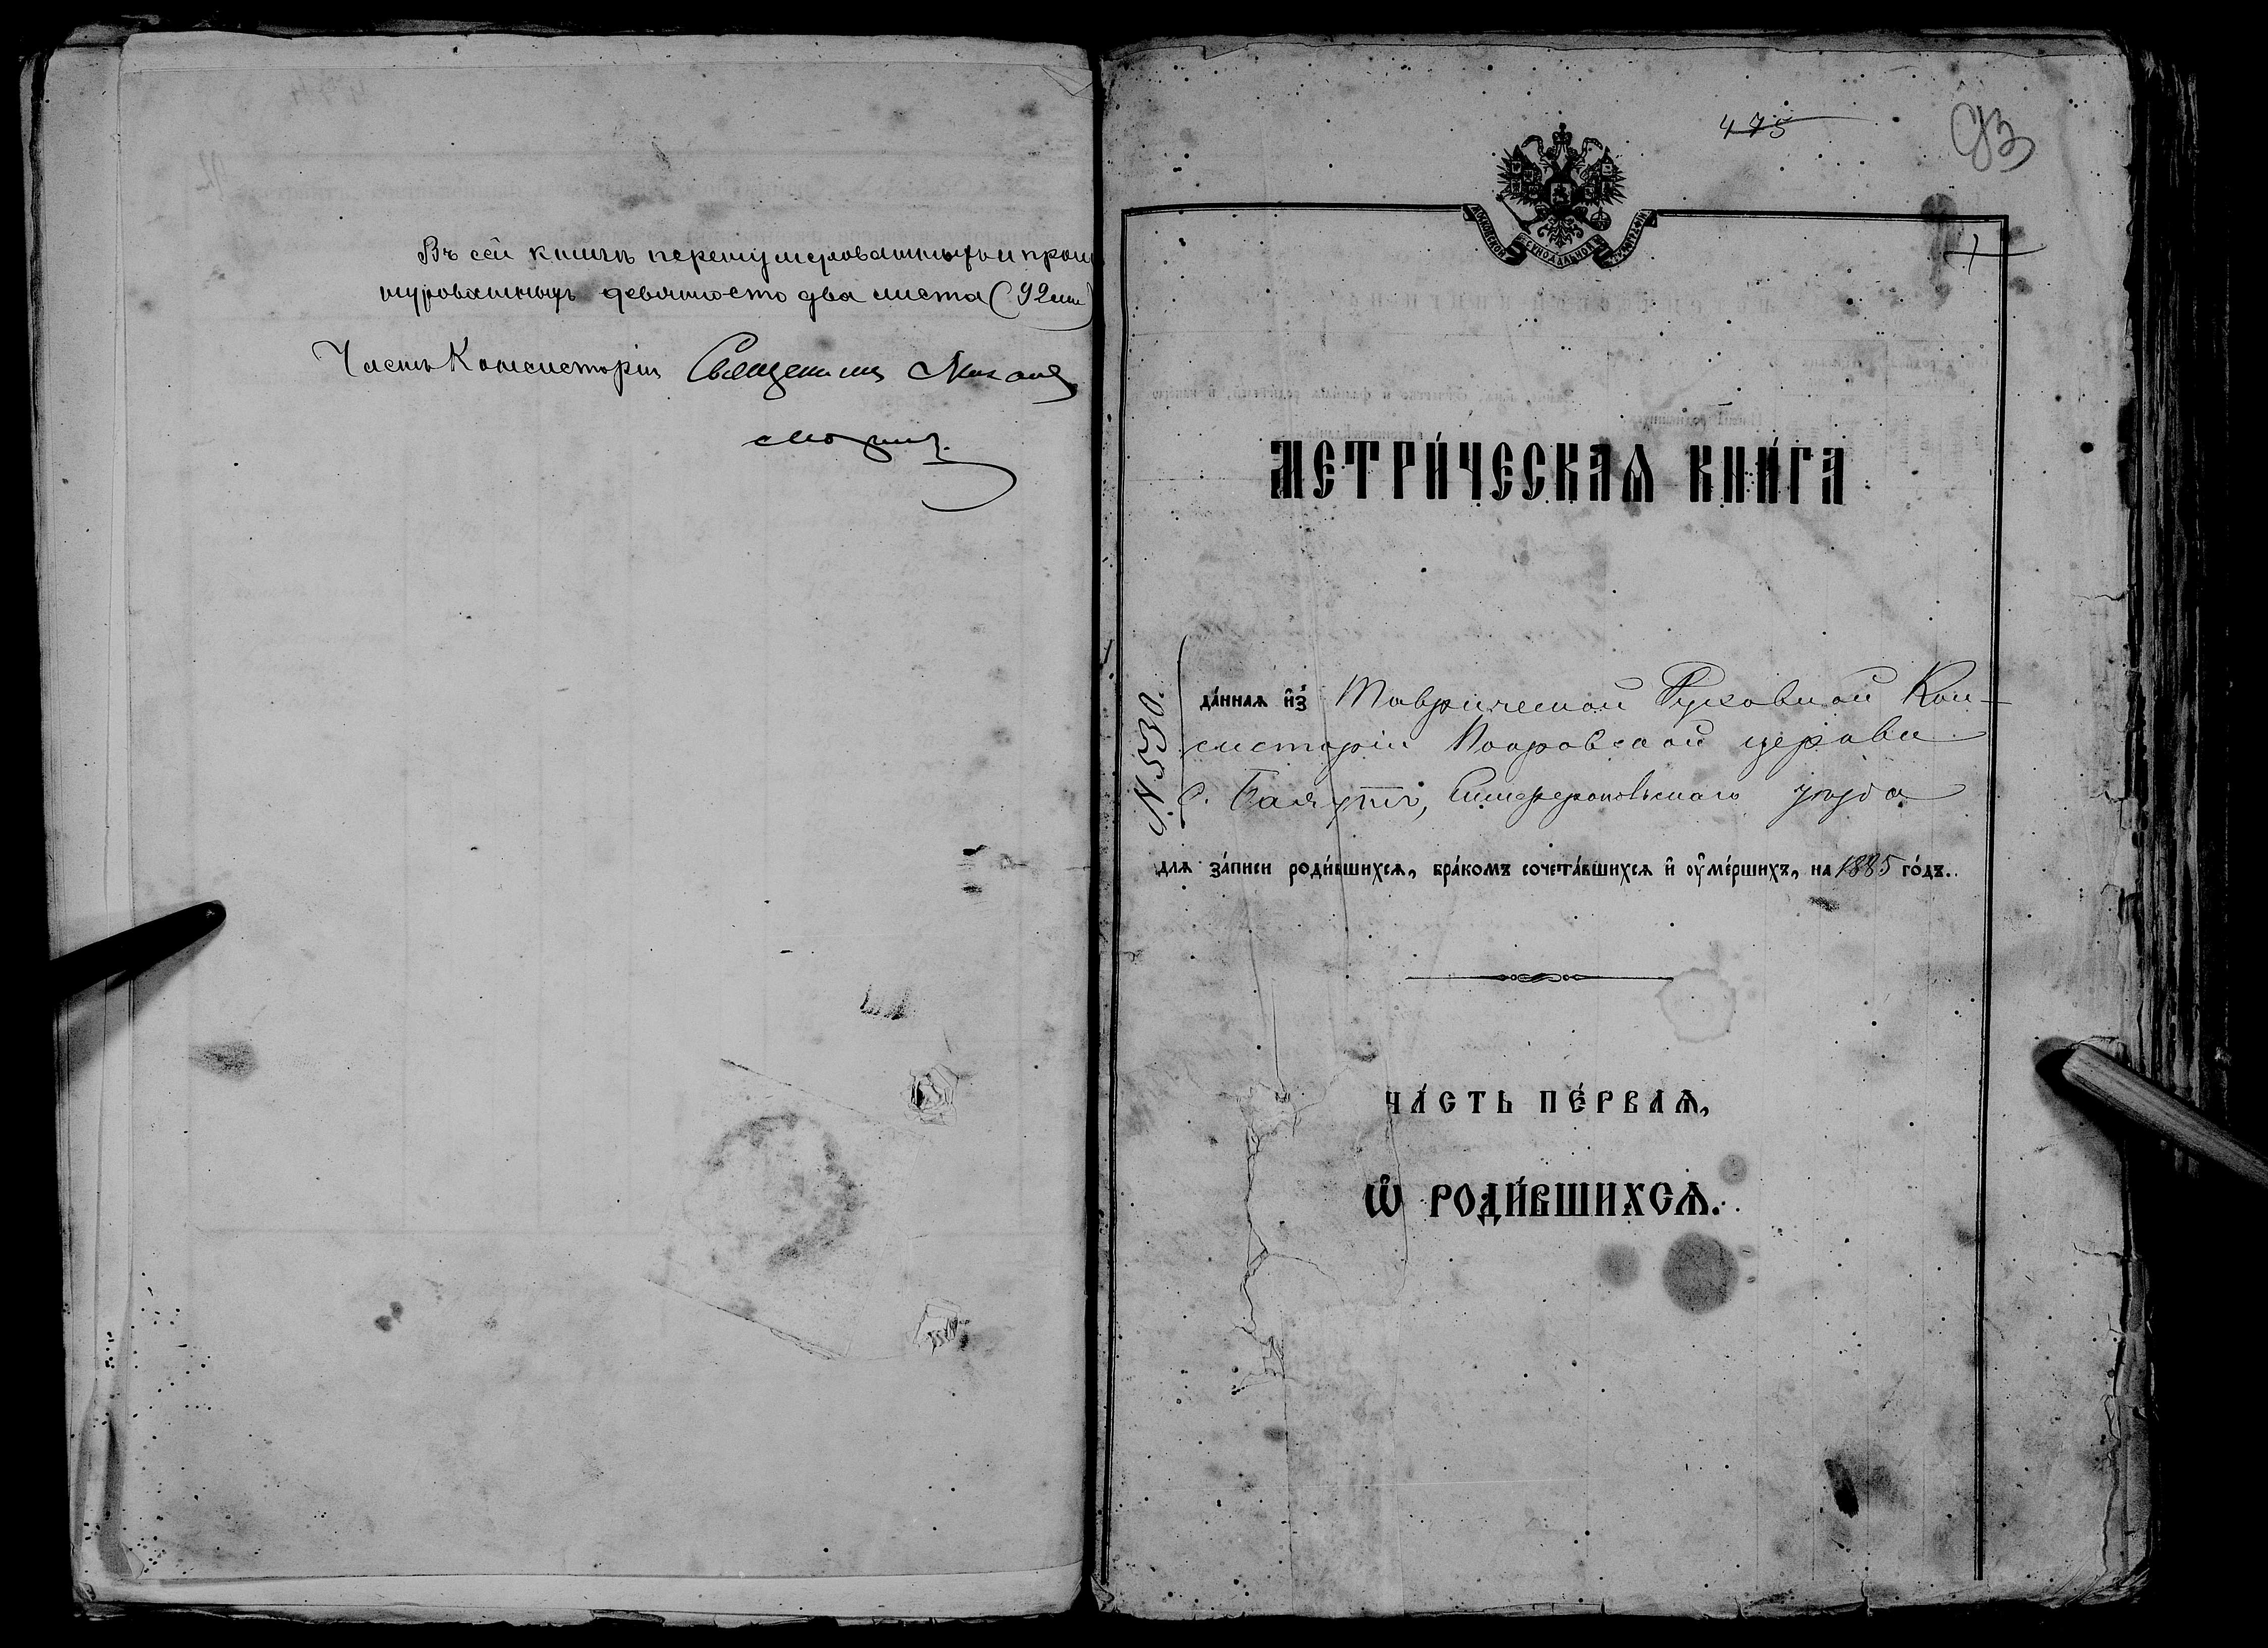 Въ сей книгѣ перенумерованныхъ и прош
нурованныхъ девяносто два листа (92 лис)
Членъ Консисторіи Священникъ Михаилъ
475
93
МОСКОВСКОЙ СѴНОДАЛЬНОЙ ТИПОГРАФІИ
1
МЕТРИ́ЧЕСКАѦ КНИ́ГА
N 530.
да́ннаѧ и҆з̾ Таврической Духовной Кон-
систоріи Покровской церкви
с. Саблы, Симферопольскаго уѣзда
длѧ за́писи роди́вшихсѧ, бра́комъ сочета́вшихсѧ и҆ оу҆ме́ршихъ, на 1885 го́дъ.
ЧА́СТЬ ПЕ́РВАѦ,
Ѡ҆ РОДИ́ВШИХСѦ.